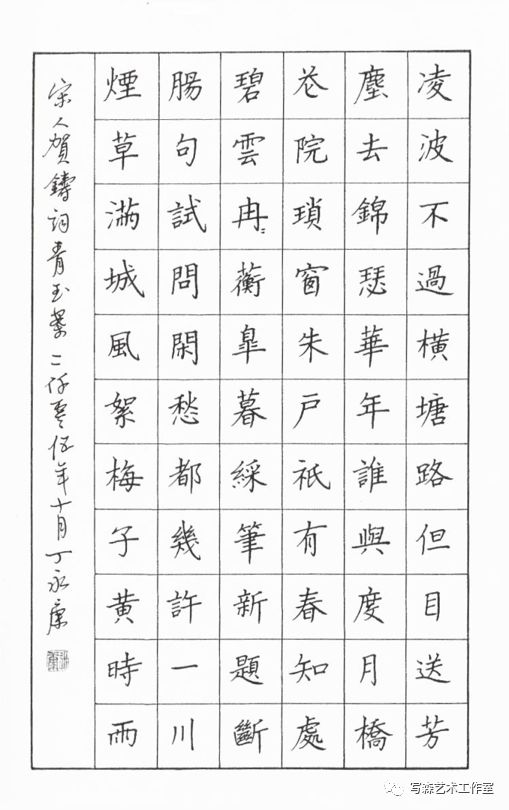 凌波不過橫塘路但目送芳
塵去錦瑟華年誰與度月橋
花院瑣窗朱戶祇有春知處
碧雲冉〻蘅皐暮綵筆新題斷
腸句試問閑愁都幾許一川
煙草滿城風絮梅子黄時雨
宋人賀鑄詞青玉案二仟零伍年十月丁永康
写森艺术工作室